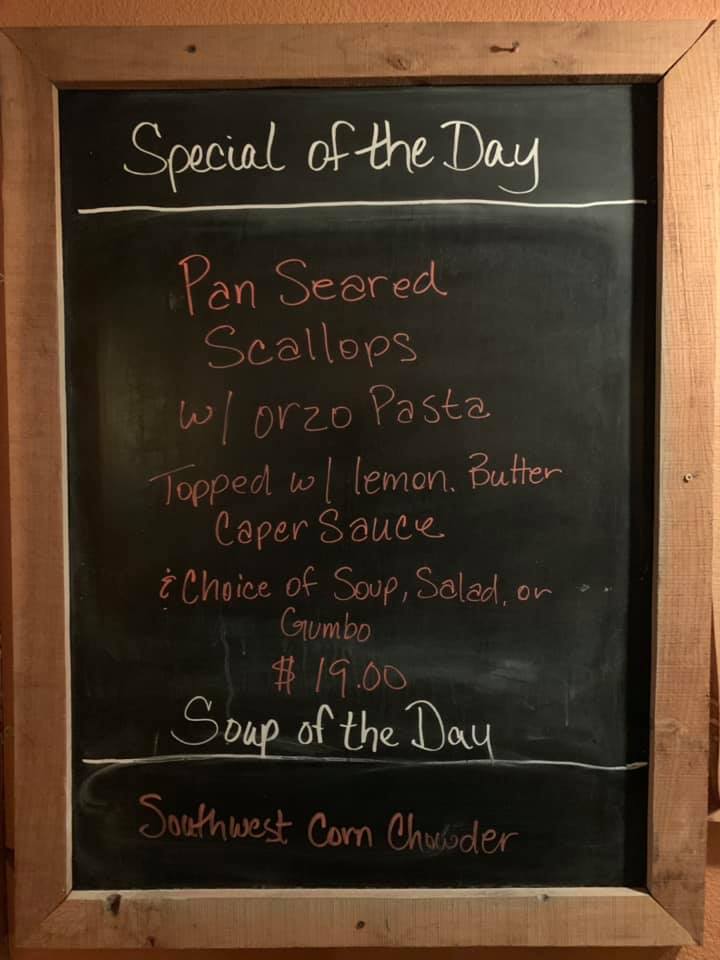 Special of the Day
Pan Seared
Scallops
w/ orzo Pasta
Topped w/ lemon. Butter
Caper Sauce
& Choice of Soup, Salad, or
Gumbo
$ 19.00
Soup of the Day
Southwest Corn Chowder